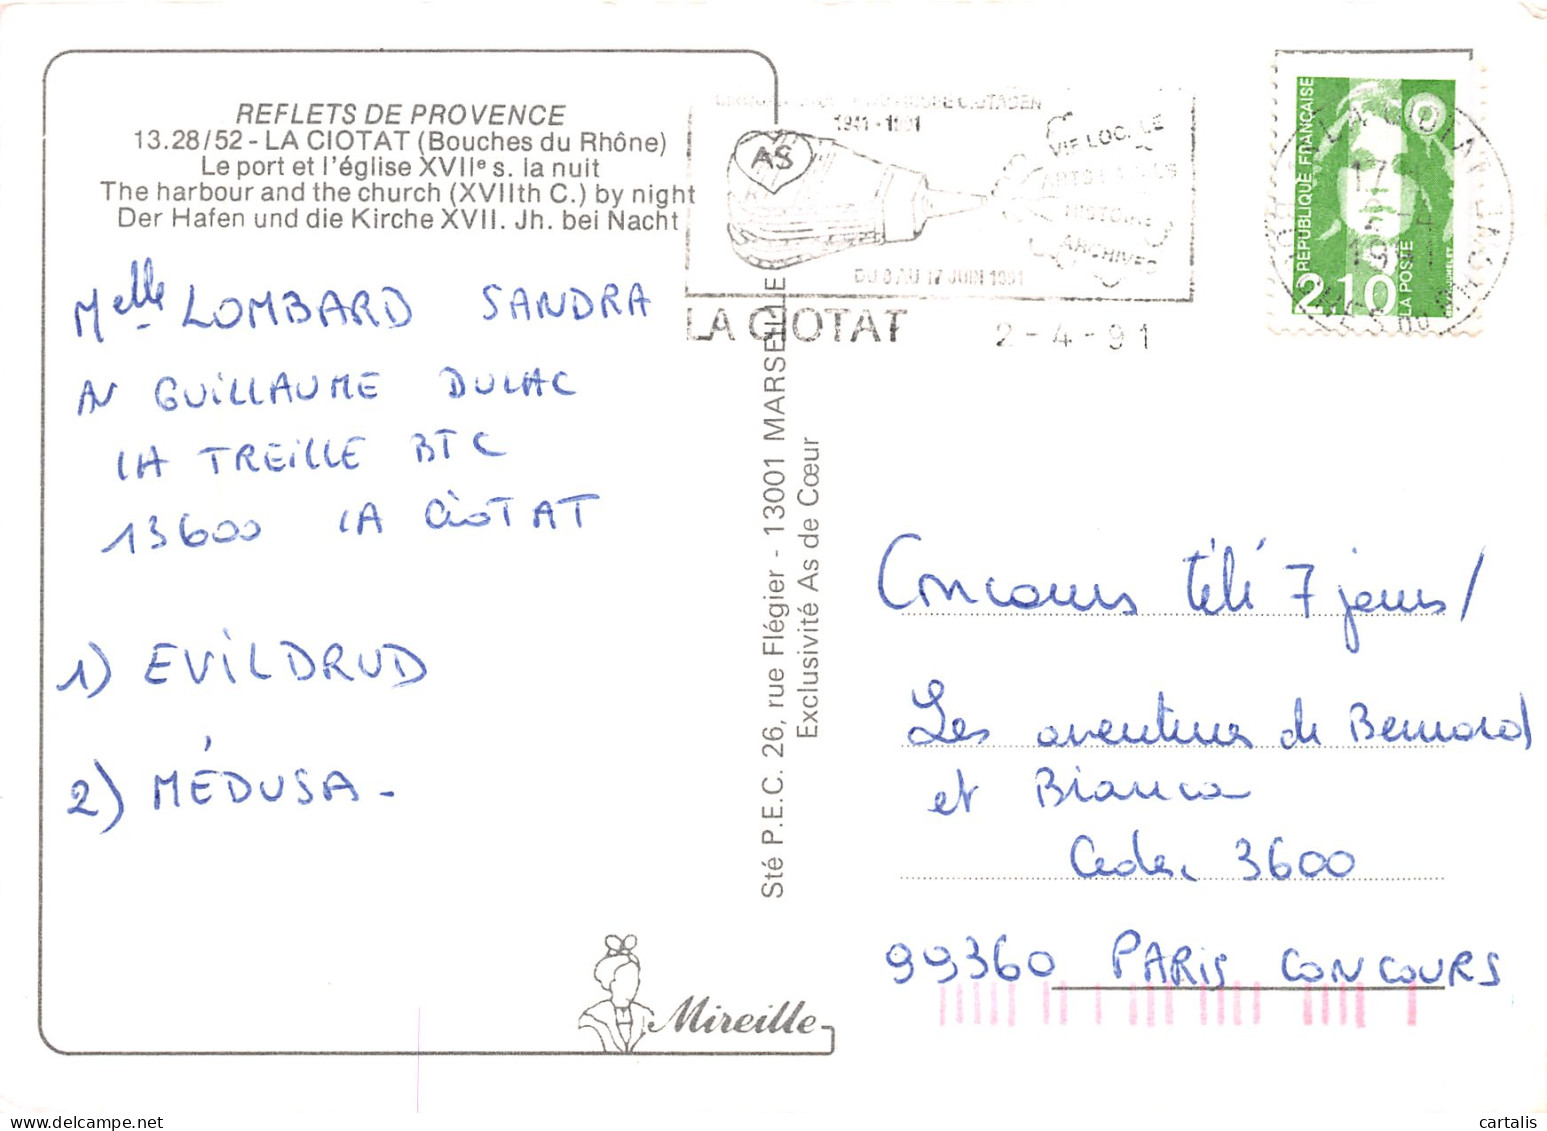 REFLETS DE PROVENCE
13.28/52 - LA CIOTAT (Bouches du Rhône)
Le port et l'église XVIIe s. la nuit
The harbour and the church (XVIIth C.) by night
Der Hafen und die Kirche XVII. Jh. bei Nacht
Melle LOMBARD SANDRA
AV GUILLAUME DULAC
LA TREILLE BTC
13600 LA CIOTAT
1) EVILDRUD
2) MÉDUSA -
Sté P.E.C. 26, rue Flégier - 13001 MARSEILLE
Exclusivité As de Cœur
Mireille
CIOTADEN
1941 - 1991
AS
VIE LOCALE
HISTOIRE
ARCHIVES
DU 8 AU 17 JUIN 1991
LA CIOTAT
2-4-91
REPUBLIQUE FRANÇAISE
2,10
LA POSTE
LA CIOTAT
Concours télé 7 jours /
Les aventures de Bernard
et Bianca
Cedex 3600
99360 PARIS CONCOURS
cartalis
delcampe.net